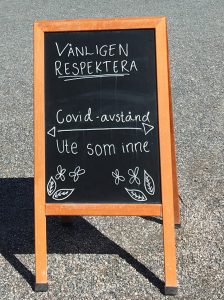 VÄNLIGEN
RESPEKTERA
Covid-avstånd
Ute som inne